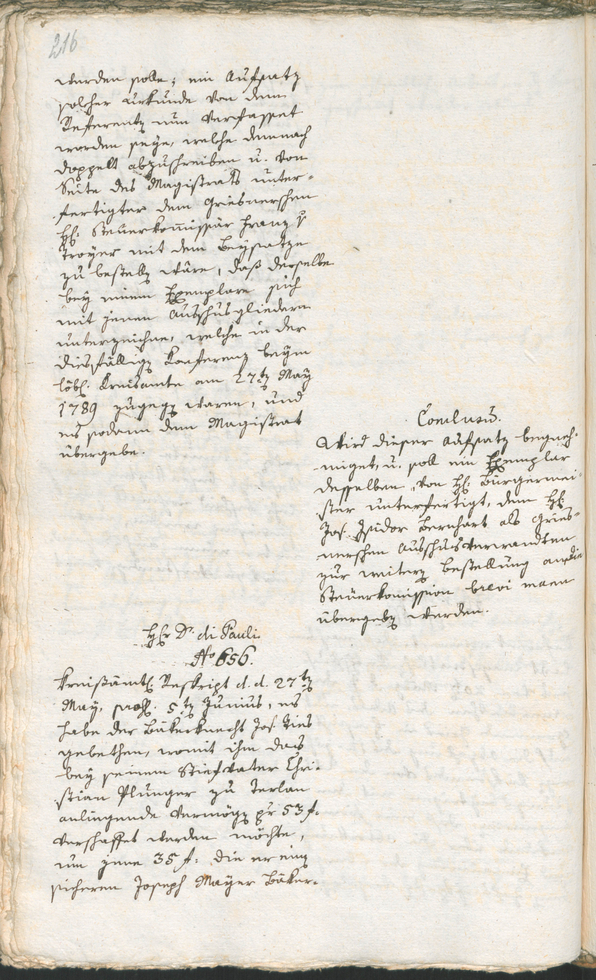 216
werden solle; ein Aufsatz
solcher Urkunde von dem
Referenten nun verfasset
worden seye, welche demnach
doppelt abzuschreiben u. von
Seite des Magistrats unter-
fertigter dem Griesnerschen
H: Steuerkommissär Franz v
Troyer mit dem Beysatze
zu bestellen wäre, daß derselbe
bey einem Exemplare sich
mit jenen Ausschusgliedern
unterzeichne, welche in der
diesfälligen Konferenz beym
löbl. Kreisamte am 27ten May
1789 zugegen waren, und
es sodann dem Magistrat
übergebe.
Conclusum.
Wird dieser Aufsatz begneh-
miget, u. soll ein Exemplar
desselben, von H: Bürgermei-
ster unterfertigt, dem H:
Jos. Isidor Bernhart als Gries-
nerschen Ausschusverwandten
zur weitern Bestellung an die
Steuerkommission brevi manu
übergeben werden.
Hr Dr. di Pauli
No 656.
Kreisämtl. Reskript d. d. 27ten
May, pros. 5ten Junius, es
habe der Bäkerknecht Jos. Dies
gebethen, womit ihm das
bey seinem Stiefvater Chri-
stian Plunger zu Terlan
anliegende Vermögen pr 53 f.
verschaffet werden möchte,
um jene 35 f. die er eine
sicheren Joseph Mayer Bäker-